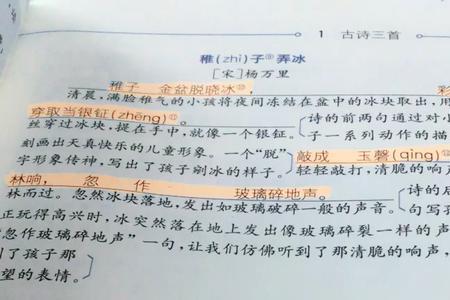 1 古诗三首
稚(zhì)子⑨弄冰
[宋]杨万里
稚子 金盆脱晓冰⑩, 彩
清晨,满脸稚气的小孩将夜间冻结在盆中的冰块取出,用
穿取当银钲(zhēng)⑪。
丝穿过冰块,提在手中,就像一个银钲。
诗的前两句通过对小
子一系列动作的描
刻画出天真快乐的儿童形象。一个“脱”
字形象传神,写出了孩子剐冰的样子。
敲成 玉磬(qìng)⑫
轻轻敲打,清脆的响声
林响, 忽 作 玻璃碎地声。
林而过。忽然冰块落地,发出如玻璃破碎一般的声音。
诗的后
句写孩
正玩得高兴时,冰突然落在地上发出像玻璃碎裂一样的声
忽作玻璃碎地声”一句,让我们仿佛听到了那清脆的响声,
了孩子那
望的表情。